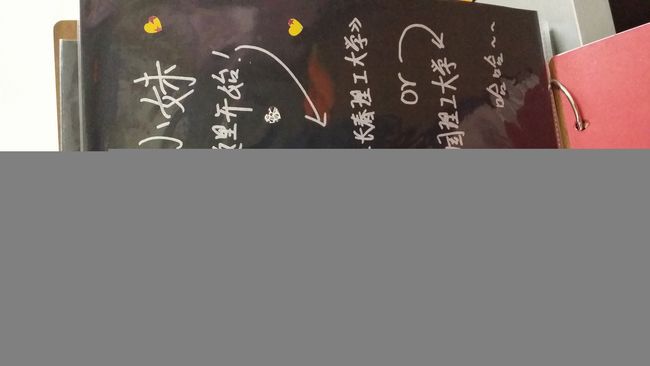 小妹
里开始！
长春理工大学》
or
国理工大学
哈哈~~